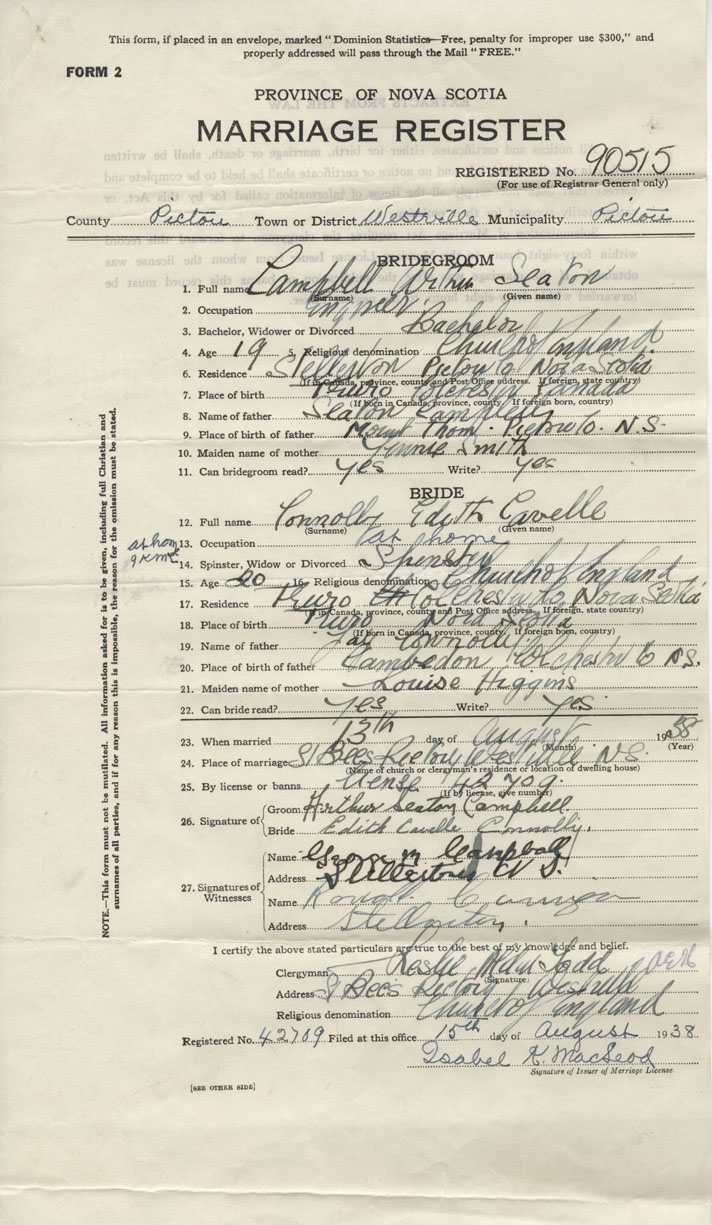 This form, if placed in an envelope, marked "Dominion Statistics—Free, penalty for improper use $300," and
properly addressed will pass through the Mail "FREE."
FORM 2
PROVINCE OF NOVA SCOTIA
MARRIAGE REGISTER
REGISTERED No. 90515
(For use of Registrar General only)
County Pictou Town or District Westville Municipality Pictou
BRIDEGROOM
1. Full name Campbell Seaton
(Surname) (Given name)
2. Occupation Engineer
3. Bachelor, Widower or Divorced Bachelor
4. Age 19 5. Religious denomination Church of England
6. Residence Stellarton Pictou Co Nova Scotia
(If in Canada, province, county and Post Office address. If foreign, state country)
7. Place of birth Truro Canada
(If born in Canada, province, county. If foreign born, country)
8. Name of father Seaton Campbell
9. Place of birth of father Mount Thom. Pictou Co. N.S.
10. Maiden name of mother Smith
11. Can bridegroom read? yes Write? yes
BRIDE
12. Full name Connolly Edith Cavelle
(Surname) (Given name)
at home
13. Occupation at home
14. Spinster, Widow or Divorced Spinster
15. Age 20 16. Religious denomination Church of England
17. Residence Truro Colchester Co, Nova Scotia
(If in Canada, province, county and Post Office address. If foreign, state country)
18. Place of birth Truro Nova Scotia
(If born in Canada, province, county. If foreign born, country)
19. Name of father Jay Connolly
20. Place of birth of father Colchester Co N.S.
21. Maiden name of mother Louise Higgins
22. Can bride read? yes Write? yes
23. When married 13th day of August 1938
(Month) (Year)
24. Place of marriage St Bees Rectory Westville N.S.
(Name of church or clergyman's residence or location of dwelling house)
25. By license or banns license 42709.
(If by license, give number)
26. Signature of
Groom Arthur Seaton Campbell
Bride Edith Cavelle Connolly.
27. Signatures of Witnesses
Name George M Campbell
Address Stellarton N S.
Name
Address Stellarton.
NOTE.—This form must not be mutilated. All information asked for is to be given, including full Christian and
surnames of all parties, and if for any reason this is impossible, the reason for the omission must be stated.
I certify the above stated particulars are true to the best of my knowledge and belief.
Clergyman Leslie Todd
(Signature)
Address St Bees Rectory Westville
Religious denomination Church of England
Registered No. 42709 Filed at this office 15th day of August 1938
Isabel K. MacLeod
Signature of Issuer of Marriage License.
[SEE OTHER SIDE]